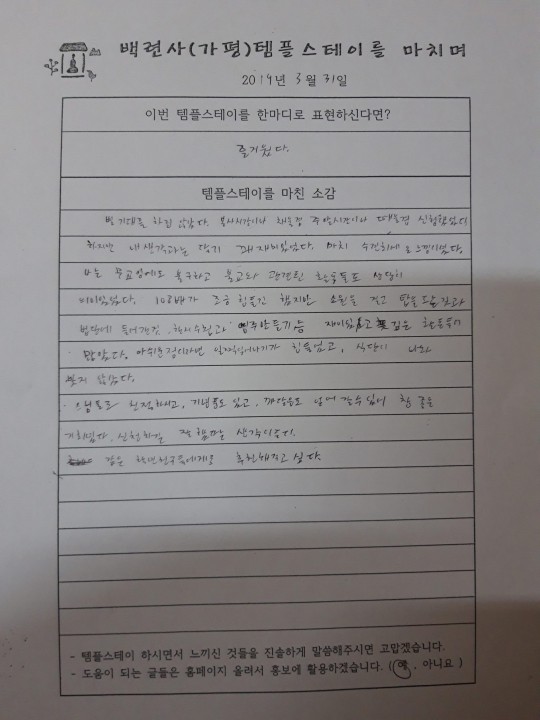 백련사(가평)템플스테이를 마치며
2019년 3월 31일
이번 템플스테이를 한마디로 표현하신다면?
즐거웠다.
템플스테이를 마친 소감
별 기대를 하진 않았다. 봉사시간이나 채울겸 신청했었다
하지만 내 생각과는 달리 꽤 재미있었다. 마치 수련회에 온 느낌이었다.
나는 무교임에도 불구하고 불교와 관련된 활동들도 상당히
재미있었다. 108배가 조금 힘들긴 했지만 소원을 적고 탑을 도는것과
법당에 들어간것, 염주만들기 등 재미있고 뜻 깊은 활동들이
많았다. 아쉬운점이라면 일찍일어나기가 힘들었고, 식단이 나와
맞지 않았다.
스님들도 친절하시고, 기념품도 있고, 깨달음도 얻어 갈수 있어 참 좋은
기회였다. 신청하길 잘했단 생각이 들었다.
같은 학년친구들에게도 추천해주고 싶다.
- 템플스테이 하시면서 느끼신 것들을 진솔하게 말씀해주시면 고맙겠습니다.
- 도움이 되는 글들은 홈페이지 올려서 홍보에 활용하겠습니다. ( 예 , 아니요 )